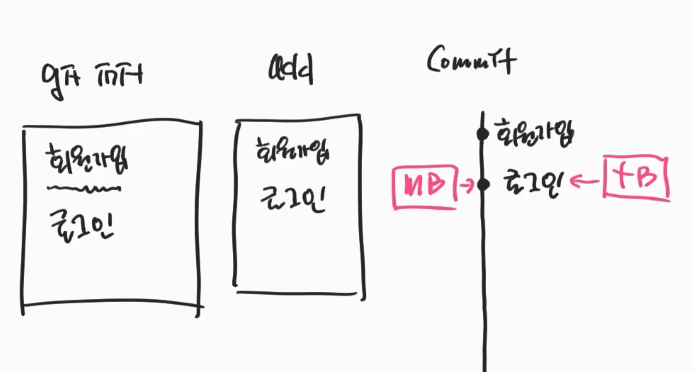 git init
회원가입
로그인
add
회원가입
로그인
Commit
회원가입
MB
로그인
TB